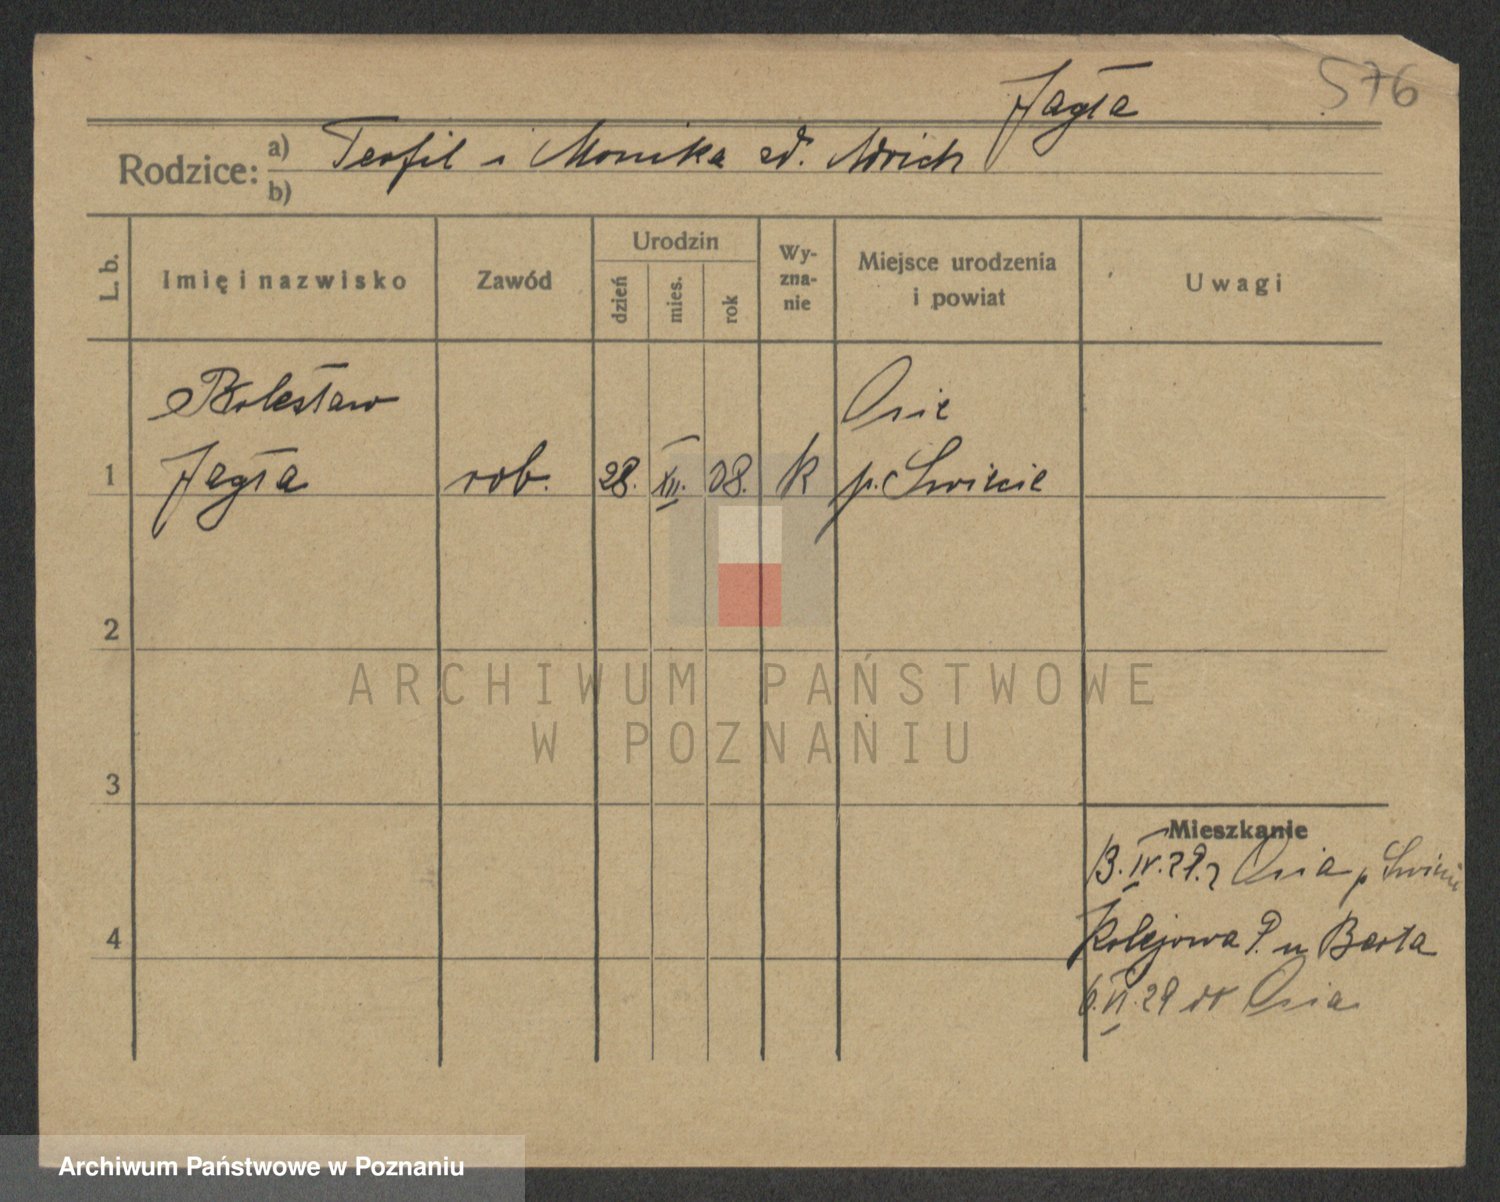 576
Jagła
Rodzice: a) Teofil i Monika zd.
b)
L. b. Imię i nazwisko Zawód Urodzin dzień mies. rok Wy-zna-nie Miejsce urodzenia i powiat Uwagi
Bolesław Osie
1 Jagła rob. 28. XII. 08. k p. Swiecie
2
3
4
Mieszkanie
13. IV. 29. z Osia p Swiecie
Kolejowa u
6. VI. 29 do Osia
ARCHIWUM PAŃSTWOWE
W POZNANIU
Archiwum Państwowe w Poznaniu